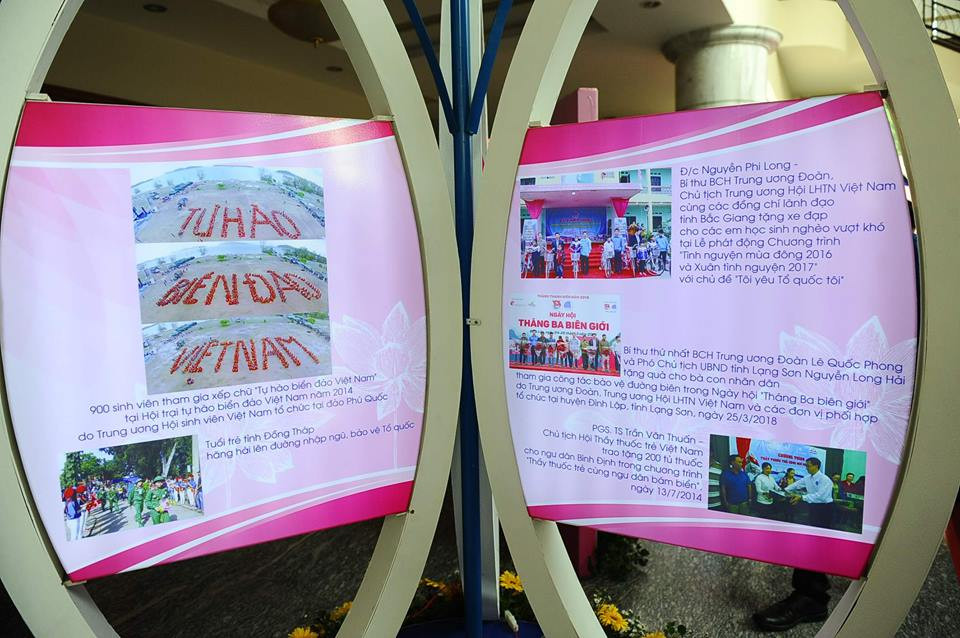 TỰ HÀO
BIỂN ĐẢO
VIỆT NAM
900 sinh viên tham gia xếp chữ "Tự hào biển đảo Việt Nam"
tại Hội trại tự hào biển đảo Việt Nam năm 2014
do Trung ương Hội sinh viên Việt Nam tổ chức tại đảo Phú Quốc
Tuổi trẻ tỉnh Đồng Tháp
hăng hái lên đường nhập ngũ, bảo vệ Tổ quốc
Đ/c Nguyễn Phi Long -
Bí thư BCH Trung ương Đoàn,
Chủ tịch Trung ương Hội LHTN Việt Nam
cùng các đồng chí lãnh đạo
tỉnh Bắc Giang tặng xe đạp
cho các em học sinh nghèo vượt khó
tại Lễ phát động Chương trình
"Tình nguyện mùa đông 2016
và Xuân tình nguyện 2017"
với chủ đề "Tôi yêu Tổ quốc tôi"
THÁNG THANH NIÊN NĂM 2018
NGÀY HỘI
THÁNG BA BIÊN GIỚI
Bí thư thứ nhất BCH Trung ương Đoàn Lê Quốc Phong
và Phó Chủ tịch UBND tỉnh Lạng Sơn Nguyễn Long Hải
tặng quà cho bà con nhân dân
tham gia công tác bảo vệ đường biên trong Ngày hội "Tháng Ba biên giới"
do Trung ương Đoàn, Trung ương Hội LHTN Việt Nam và các đơn vị phối hợp
tổ chức tại huyện Đình Lập, tỉnh Lạng Sơn, ngày 25/3/2018
PGS. TS Trần Văn Thuấn –
Chủ tịch Hội Thầy thuốc trẻ Việt Nam
trao tặng 200 tủ thuốc
cho ngư dân Bình Định trong chương trình
"Thầy thuốc trẻ cùng ngư dân bám biển",
ngày 13/7/2014
CHƯƠNG TRÌNH